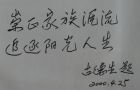 崇正家族源流
追逐阳光人生
古德生题
2020.4.25